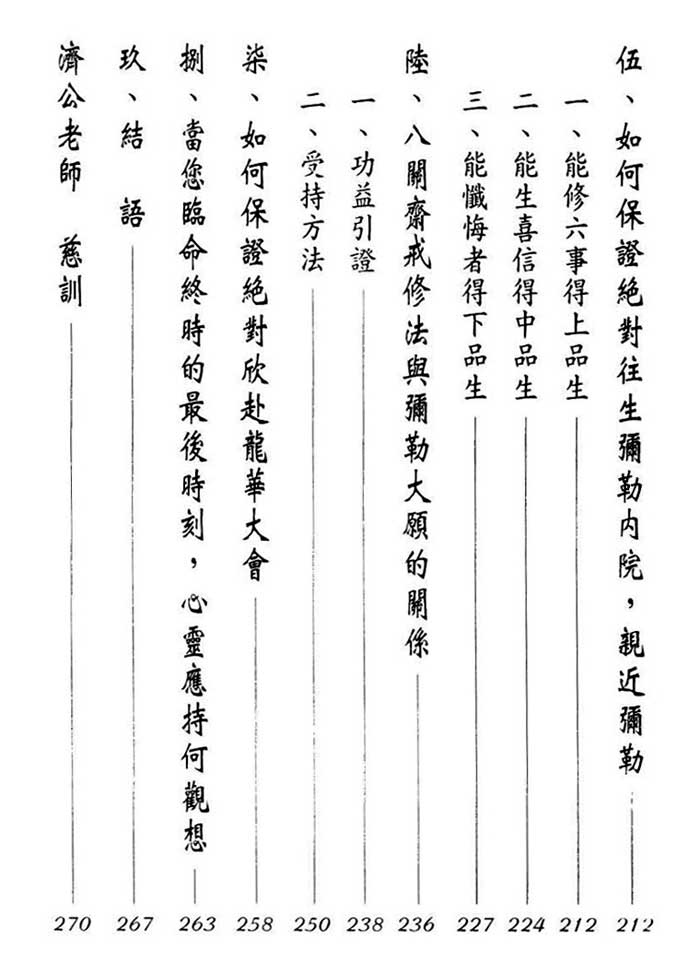 伍、如何保證絕對往生彌勒內院，親近彌勒 212
一、能修六事得上品生 212
二、能生喜信得中品生 224
三、能懺悔者得下品生 227
陸、八關齋戒修法與彌勒大願的關係 236
一、功益引證 238
二、受持方法 250
柒、如何保證絕對欣赴龍華大會 258
捌、當您臨命終時的最後時刻，心靈應持何觀想 263
玖、結 語 267
濟公老師 慈訓 270